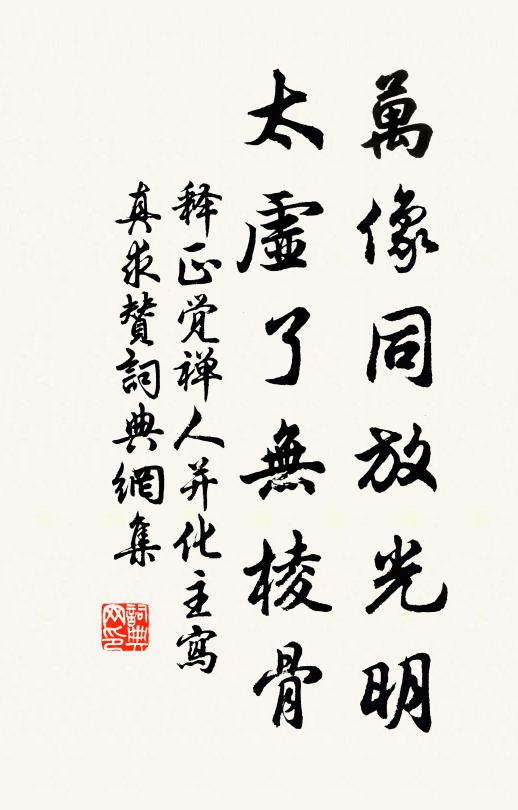 萬像同放光明
太虛了無棱骨
释正觉禅人并化主寫
真求贊詞典網集
詞典网印